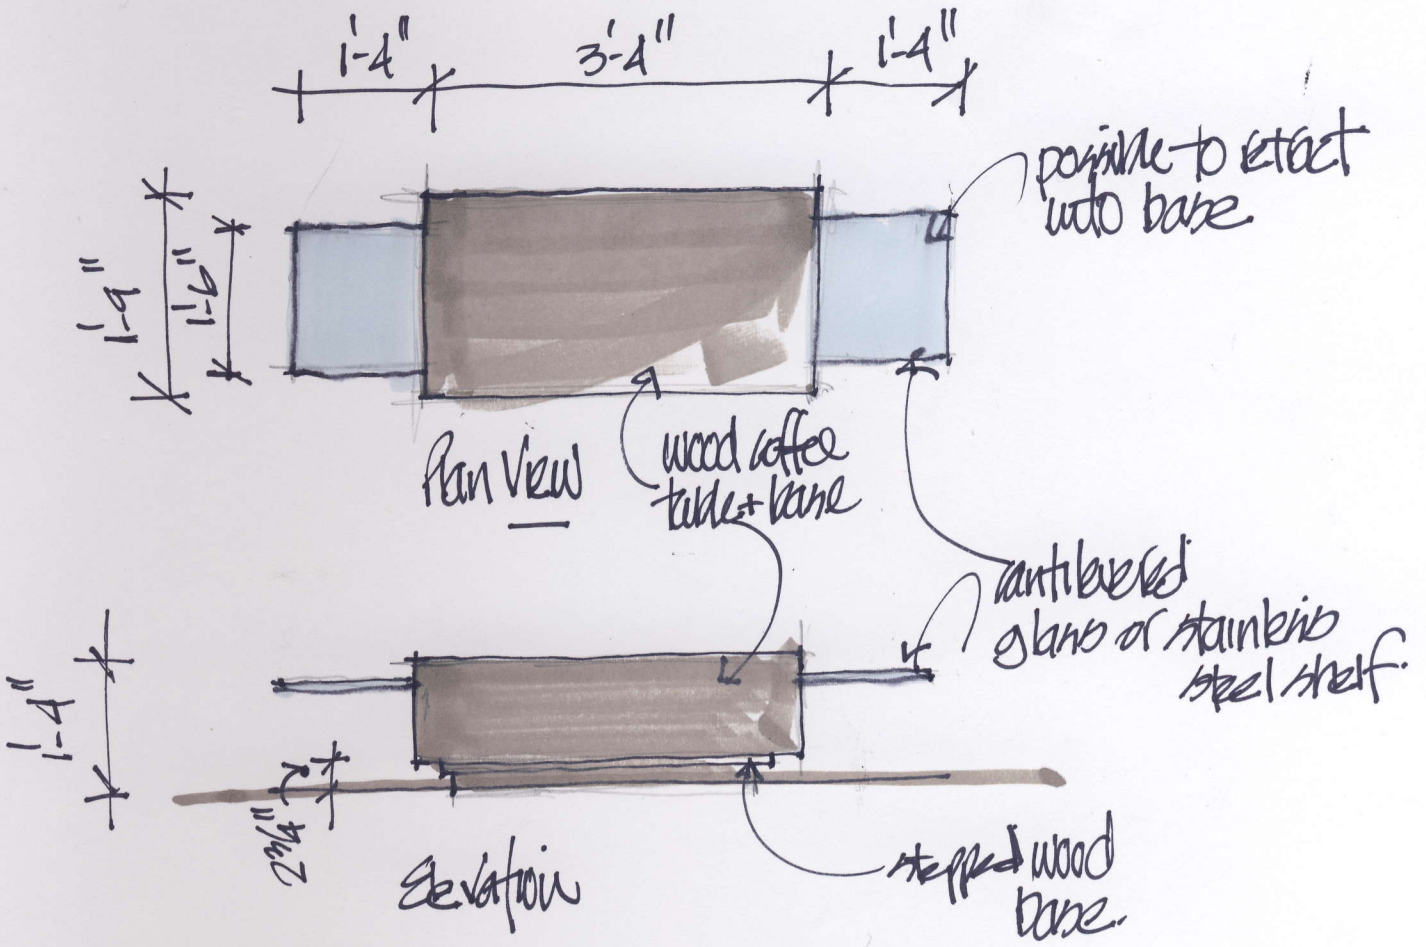 1'-4"
3'-4"
1'-4"
possible to retract
into base
1'-9"
1'-6"
Plan View
wood coffee
table + base
cantilevered
glass or stainless
steel shelf.
1'-4"
2 3/4"
Elevation
stepped wood
base.